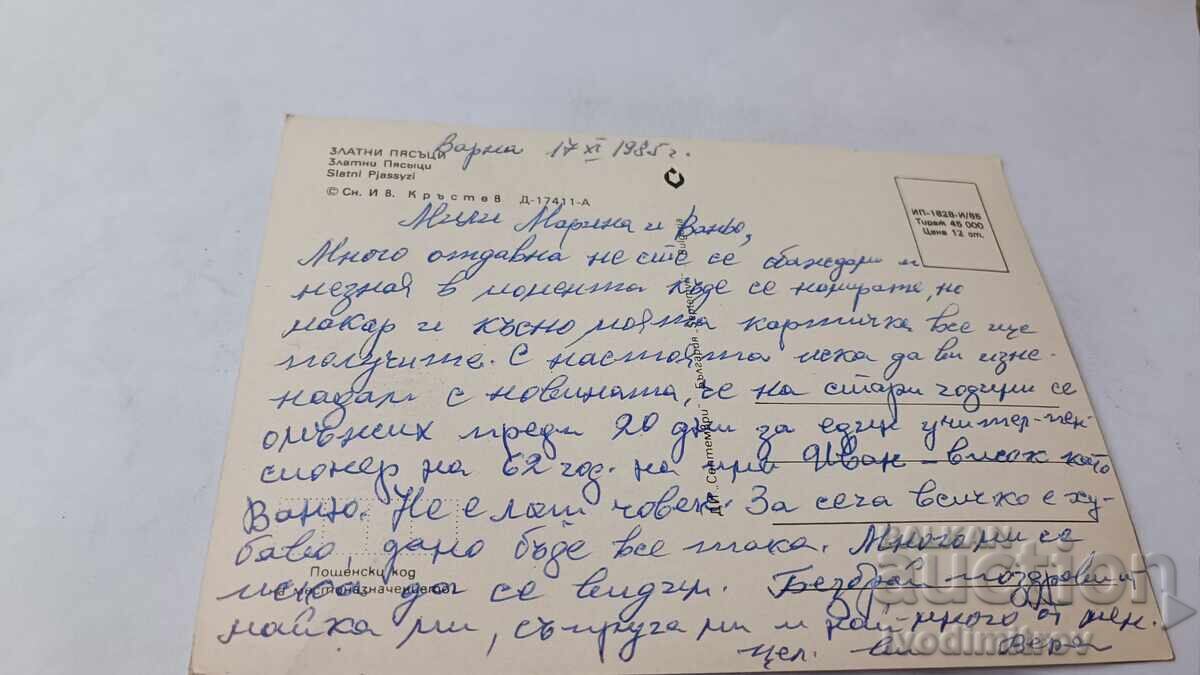 Варна 17 XI 1985 г.
ЗЛАТНИ ПЯСЪЦИ
Златни Пясыци
Slatni Pjassyzi
© Сн. И В. Кръстев Д-17411-А
ИП-1828-И/85
Тираж 45 000
Цена 12 ст.
Мили Марина и Ваньо,
Много отдавна не сте се обаждали и
незная в момента къде се намирате, но
макар и късно моята картичка все ще
получите. С настоящата иска да ви изне-
надам с новината, че на стари години се
омъжих преди 20 дни за един учител-пен-
сионер на 62 год. на има Иван - висок като
Ваньо. Не е лош човек. За сега всичко е ху-
баво, дано бъде все така. Много ми се
иска да се видим. Безброй поздрави от
майка ми, съпруга ми и най-много от мен.
Цел. ви Вера
ДП „Септември" - България - Septemvri - Bulgaria
Пощенски код
местоназначението
BALKAN
auction
ivodimitrov